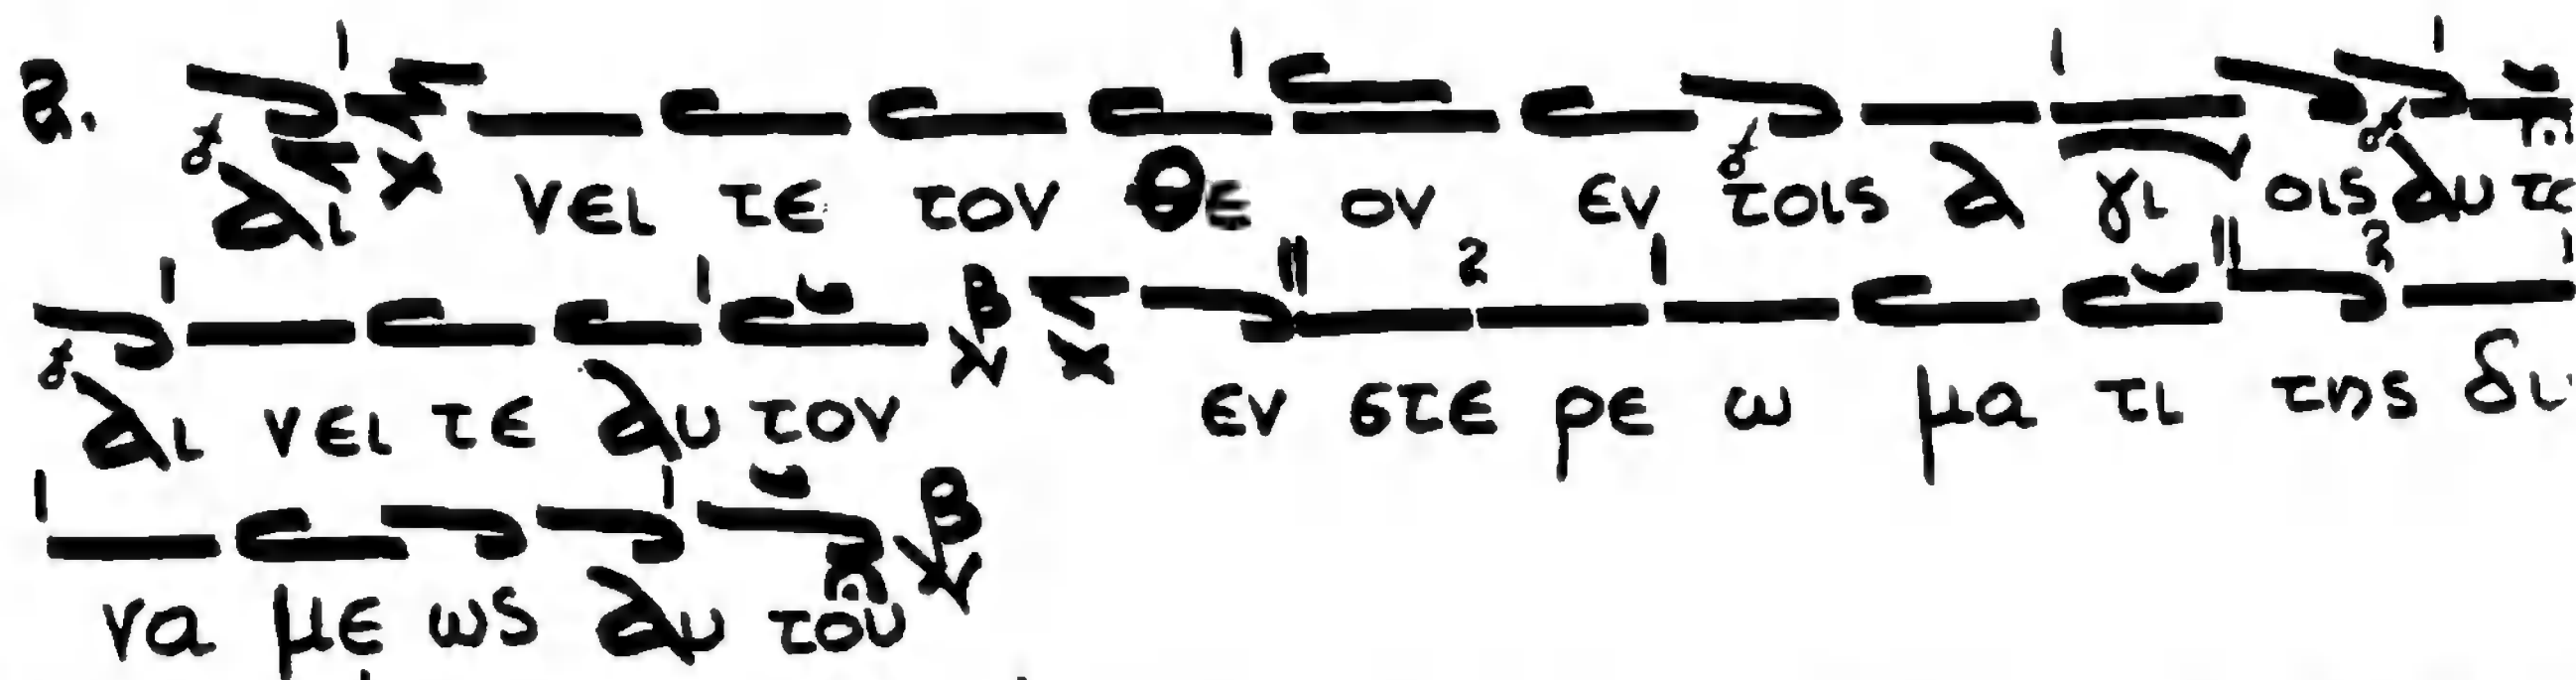 2. αι νει τε τον Θε ον εν τοις α γι οις αυ το
αι νει τε αυ τον β εν στε ρε ω μα τι της δυ
να με ως αυ του β